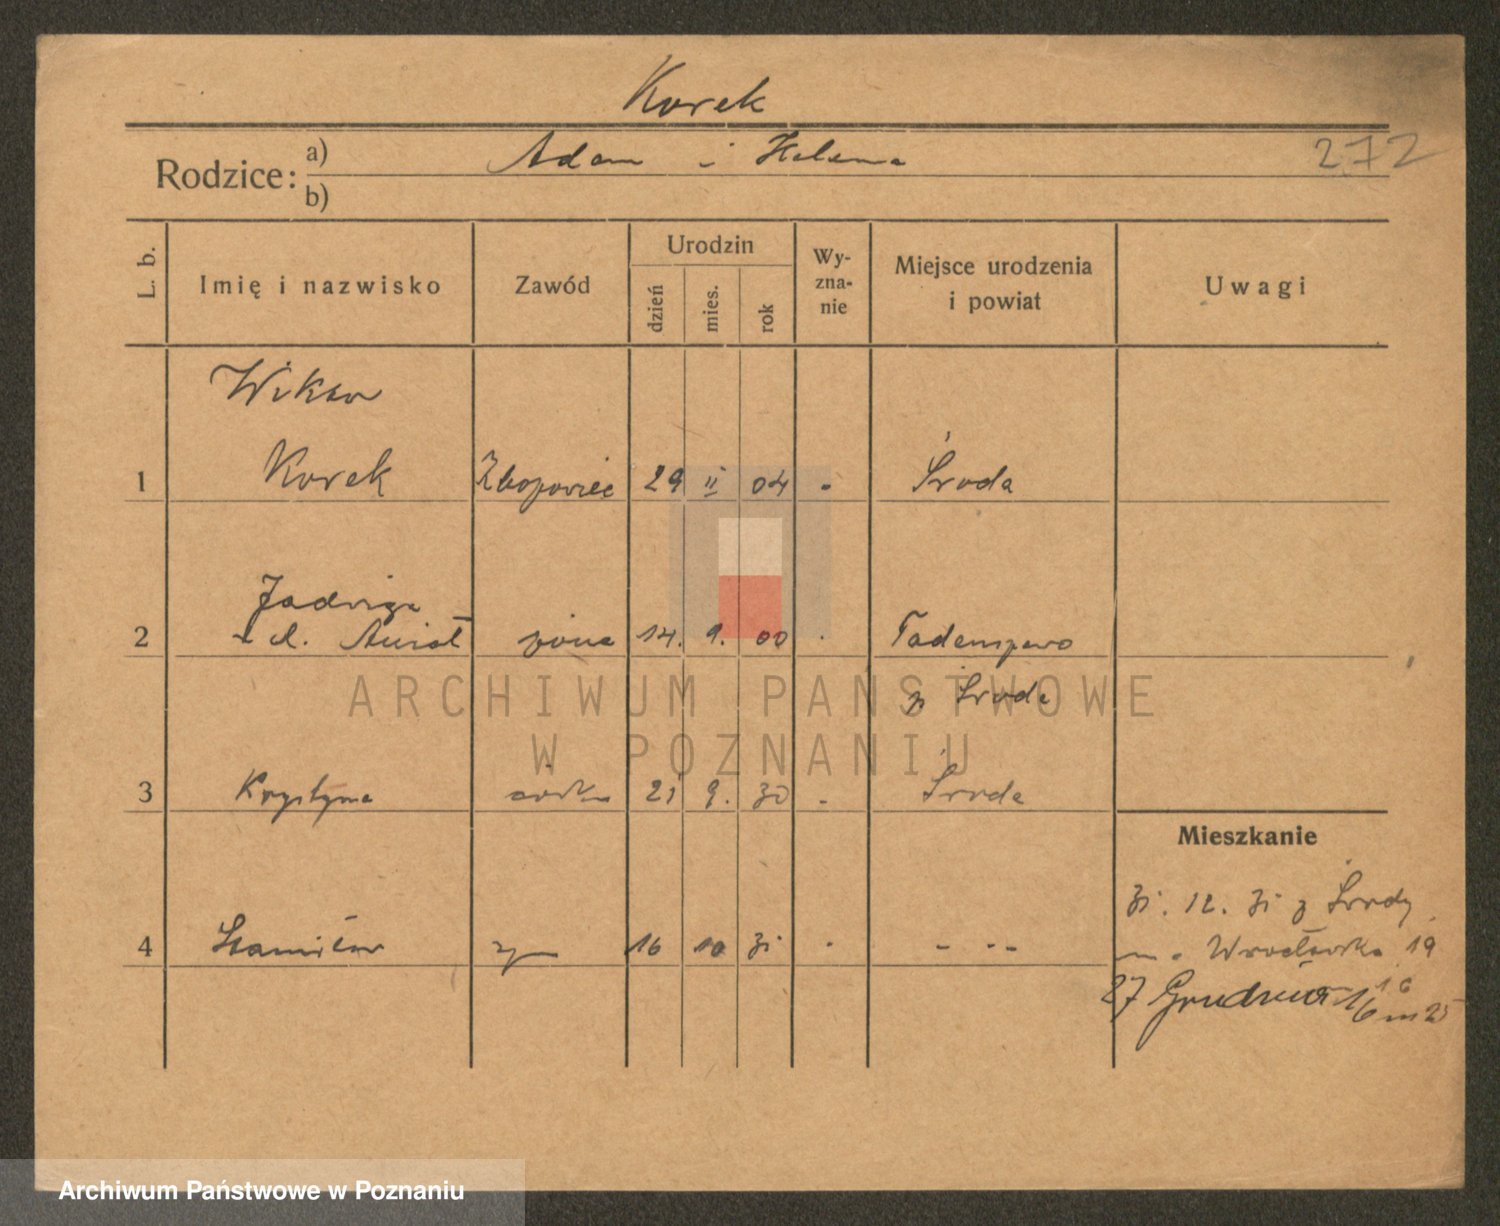 Korek
272
Rodzice:
a) Adam i Helena
b)
L. b. Imię i nazwisko Zawód Urodzin dzień mies. rok Wy-zna-nie Miejsce urodzenia i powiat Uwagi
Wiktor
1 Korek 29 II 04 Środa
Jadwiga
2 żona 14. 9. 00
p Środa
3 Krystyna córka 21 9. 30 Środa
Mieszkanie
31. 12. 31 z Środy
4 16 10 31 - -- Wrocławska 19
27 Grudnia 16
ARCHIWUM PAŃSTWOWE
W POZNANIU
Archiwum Państwowe w Poznaniu